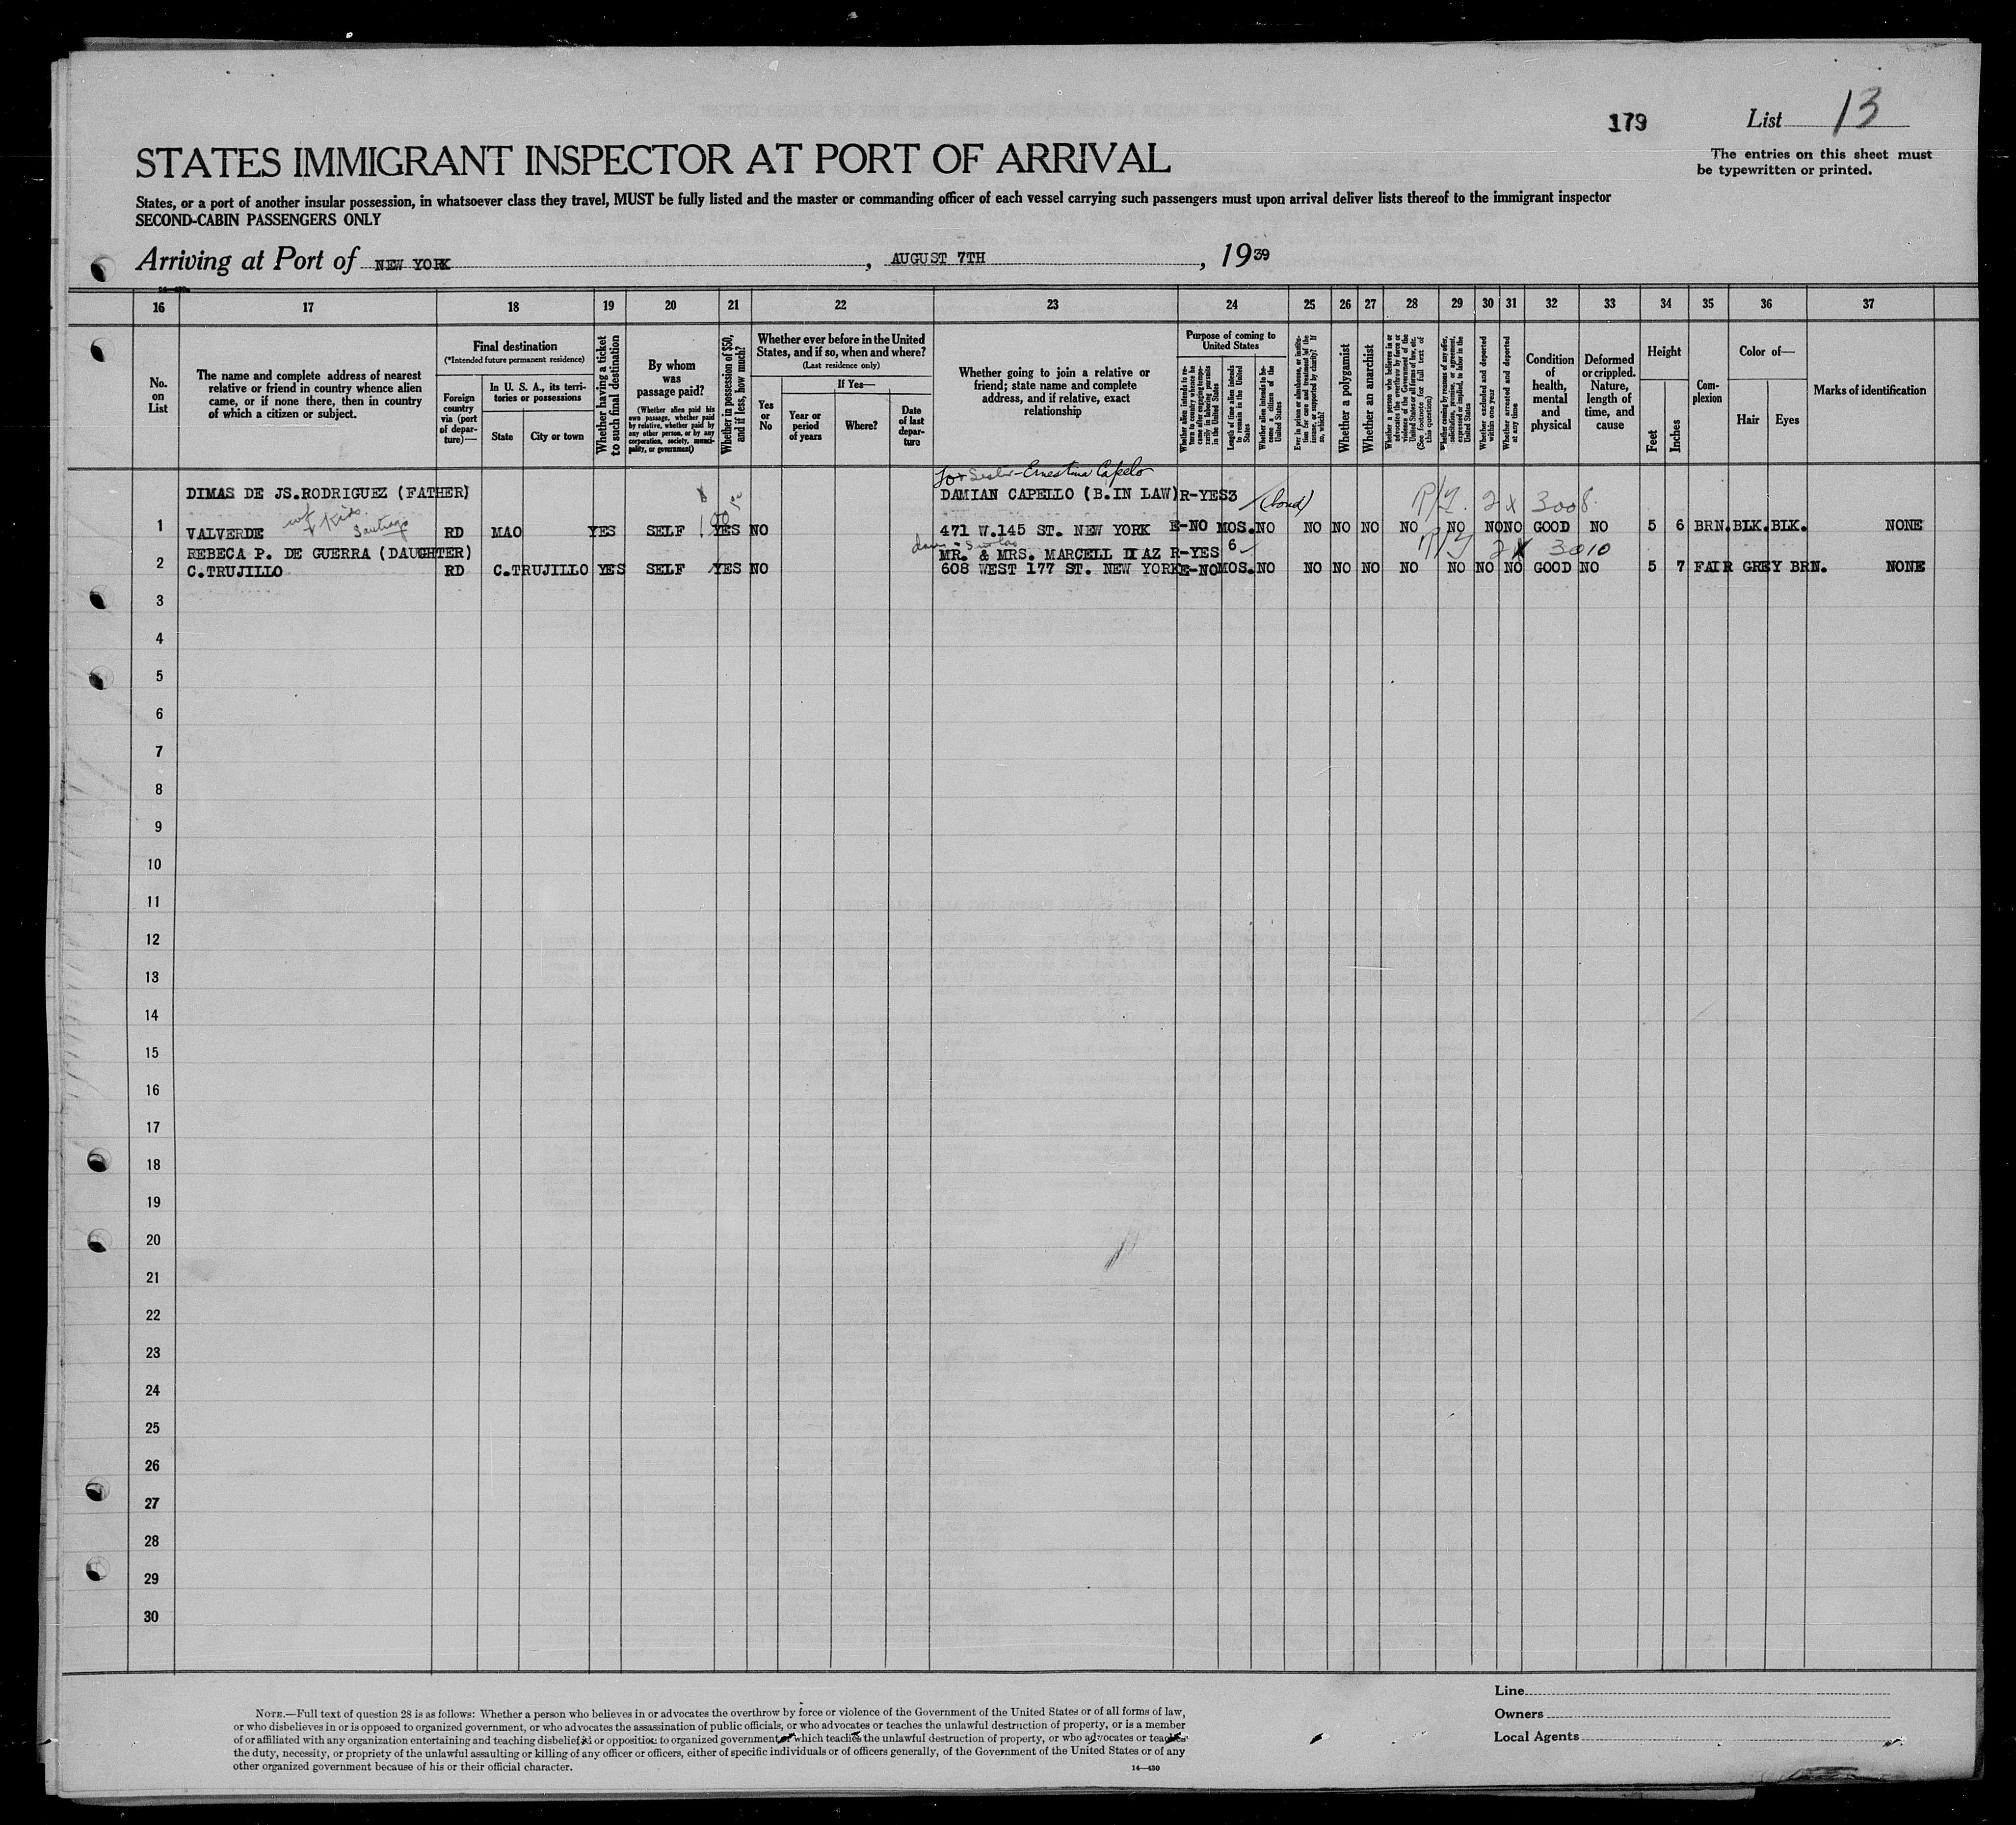 179
List 13
The entries on this sheet must
be typewritten or printed.
STATES IMMIGRANT INSPECTOR AT PORT OF ARRIVAL
States, or a port of another insular possession, in whatsoever class they travel, MUST be fully listed and the master or commanding officer of each vessel carrying such passengers must upon arrival deliver lists thereof to the immigrant inspector
SECOND-CABIN PASSENGERS ONLY
Arriving at Port of NEW YORK, AUGUST 7TH, 1939
16 17 18 19 20 21 22 23 24 25 26 27 28 29 30 31 32 33 34 35 36 37
No. on List
The name and complete address of nearest
relative or friend in country whence alien
came, or if none there, then in country
of which a citizen or subject.
Final destination
(*Intended future permanent residence)
Foreign country via (port of departure)—
In U. S. A., its territories or possessions
State
City or town
Whether having a ticket to such final destination
By whom was passage paid?
(Whether alien paid his own passage, whether paid by relative, whether paid by any other person, or by any corporation, society, municipality, or government)
Whether in possession of $50, and if less, how much?
Whether ever before in the United
States, and if so, when and where?
(Last residence only)
If Yes—
Yes or No
Year or period of years
Where?
Date of last departure
Whether going to join a relative or
friend; state name and complete
address, and if relative, exact
relationship
Purpose of coming to
United States
Whether alien intends to return to country whence he came after engaging temporarily in laboring pursuits in the United States
Length of time alien intends to remain in the United States
Whether alien intends to become a citizen of the United States
Ever in prison or almshouse, or institution for care and treatment of the insane, or supported by charity? If so, which?
Whether a polygamist
Whether an anarchist
Whether a person who believes in or advocates the overthrow by force or violence of the Government of the United States or all forms of law, etc. (See footnote for full text of this question)
Whether coming by reason of any offer, solicitation, promise, or agreement, expressed or implied, to labor in the United States
Whether excluded and deported within one year
Whether arrested and deported at any time
Condition of health, mental and physical
Deformed or crippled. Nature, length of time, and cause
Height
Feet
Inches
Complexion
Color of—
Hair
Eyes
Marks of identification
Sister-Ernestina Capelo
DIMAS DE JS.RODRIGUEZ (FATHER) DAMIAN CAPELLO (B.IN LAW) R-YES 3 (bond) 2 x 3008
wf + Kids Santiago
1 VALVERDE RD MAO YES SELF 100 YES NO 471 W.145 ST. NEW YORK E-NO MOS. NO NO NO NO NO NO NO NO GOOD NO 5 6 BRN. BLK. BLK. NONE
REBECA P. DE GUERRA (DAUGHTER) MR. & MRS. MARCELL DIAZ R-YES 6 2 x 3010
2 C.TRUJILLO RD C.TRUJILLO YES SELF YES NO 608 WEST 177 ST. NEW YORK E-NO MOS. NO NO NO NO NO NO NO NO GOOD NO 5 7 FAIR GREY BRN. NONE
3
4
5
6
7
8
9
10
11
12
13
14
15
16
17
18
19
20
21
22
23
24
25
26
27
28
29
30
NOTE.—Full text of question 28 is as follows: Whether a person who believes in or advocates the overthrow by force or violence of the Government of the United States or of all forms of law,
or who disbelieves in or is opposed to organized government, or who advocates the assassination of public officials, or who advocates or teaches the unlawful destruction of property, or is a member
of or affiliated with any organization entertaining and teaching disbelief in or opposition to organized government or which teaches the unlawful destruction of property, or who advocates or teaches
the duty, necessity, or propriety of the unlawful assaulting or killing of any officer or officers, either of specific individuals or of officers generally, of the Government of the United States or of any
other organized government because of his or their official character.
14—430
Line
Owners
Local Agents